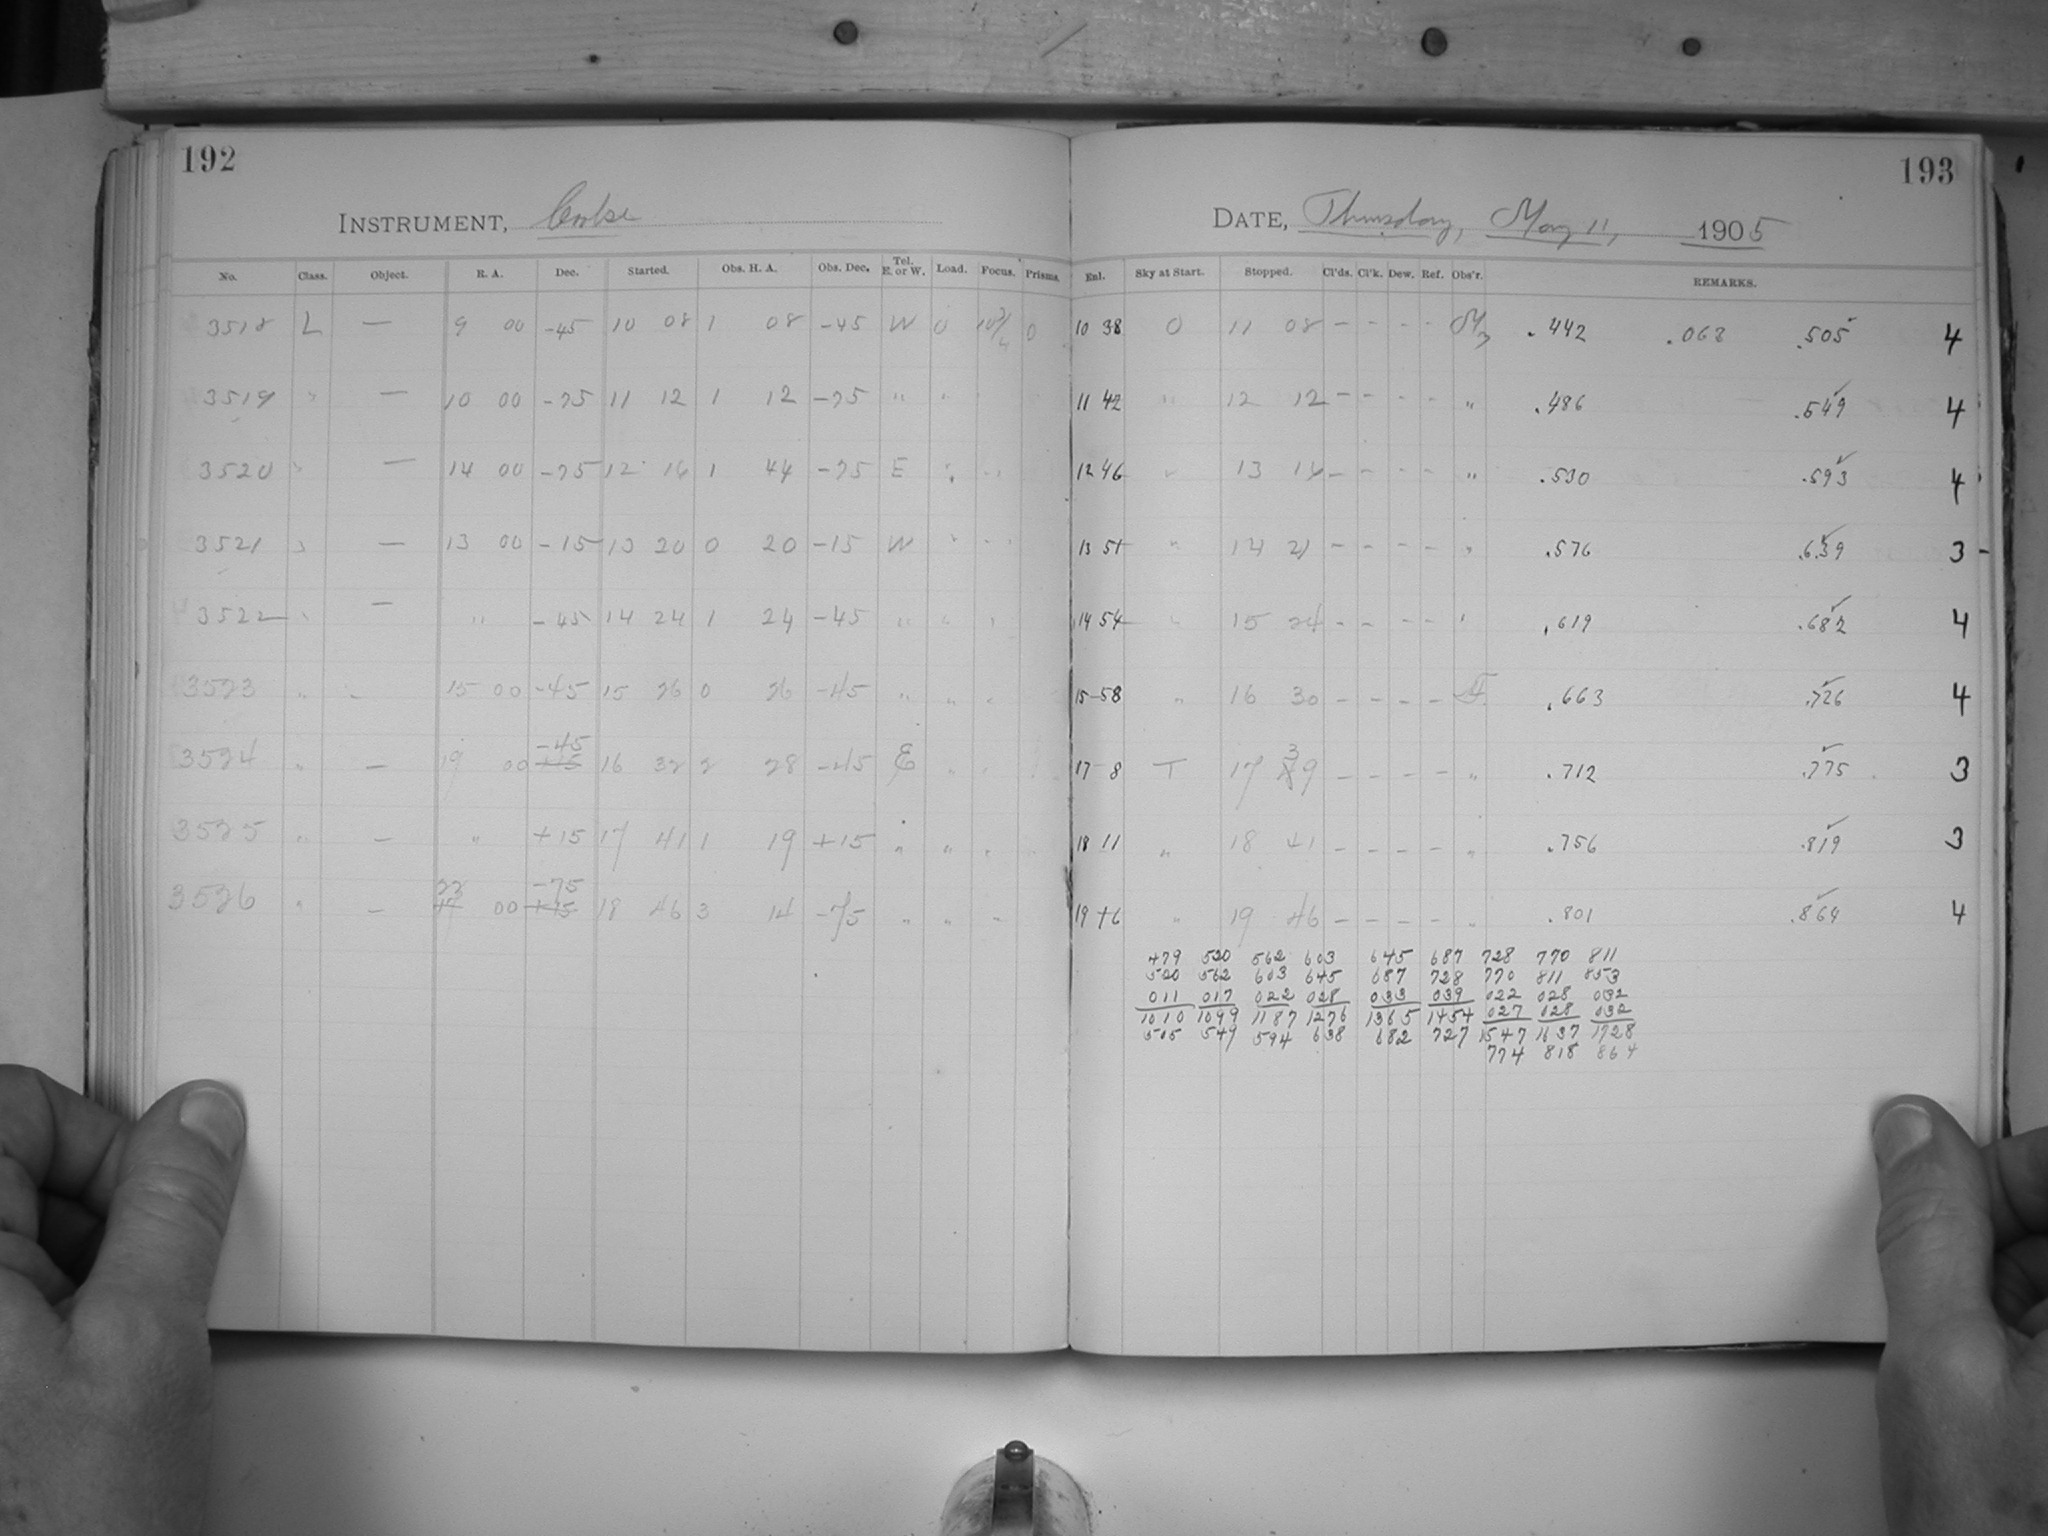 192
INSTRUMENT, Cooke
No. Class. Object. R. A. Dec. Started. Obs. H. A. Obs. Dec. Tel. E. or W. Load. Focus. Prisms.
3518 L — 9 00 -45 10 08 1 08 -45 W 0 0
3519 " — 10 00 -75 11 12 1 12 -75 " "
3520 " — 14 00 -75 12 16 1 44 -75 E " "
3521 " — 13 00 -15 13 20 0 20 -15 W " "
3522 " — " -45 14 24 1 24 -45 " " "
3523 " — 15 00 -45 15 26 0 26 -45 " " "
3524 " — 19 00 -45 16 32 2 28 -45 E " "
3525 " — " +15 17 41 1 19 +15 " " "
3526 " — 22 00 -75 18 46 3 14 -75 " " "
193
DATE, Thursday, May 11, 1905
Enl. Sky at Start. Stopped. Cl'ds. Cl'k. Dew. Ref. Obs'r. REMARKS.
10 38 0 11 08 - - - - .442 .063 .505 4
11 42 " 12 12 - - - - " .486 .549 4
12 46 " 13 16 - - - - " .530 .593 4
13 51 " 14 21 - - - - " .576 .639 3
14 54 " 15 24 - - - - " .619 .682 4
15 58 " 16 30 - - - - .663 .726 4
17 8 T 17 39 - - - - " .712 .775 3
18 11 " 18 41 - - - - " .756 .819 3
19 16 " 19 46 - - - - " .801 .864 4
479 520 562 603 645 687 728 770 811
520 562 603 645 687 728 770 811 853
011 017 022 028 033 039 022 028 032
1010 1099 1187 1276 1365 1454 027 028 032
505 549 594 638 682 727 1547 1637 1728
774 818 864